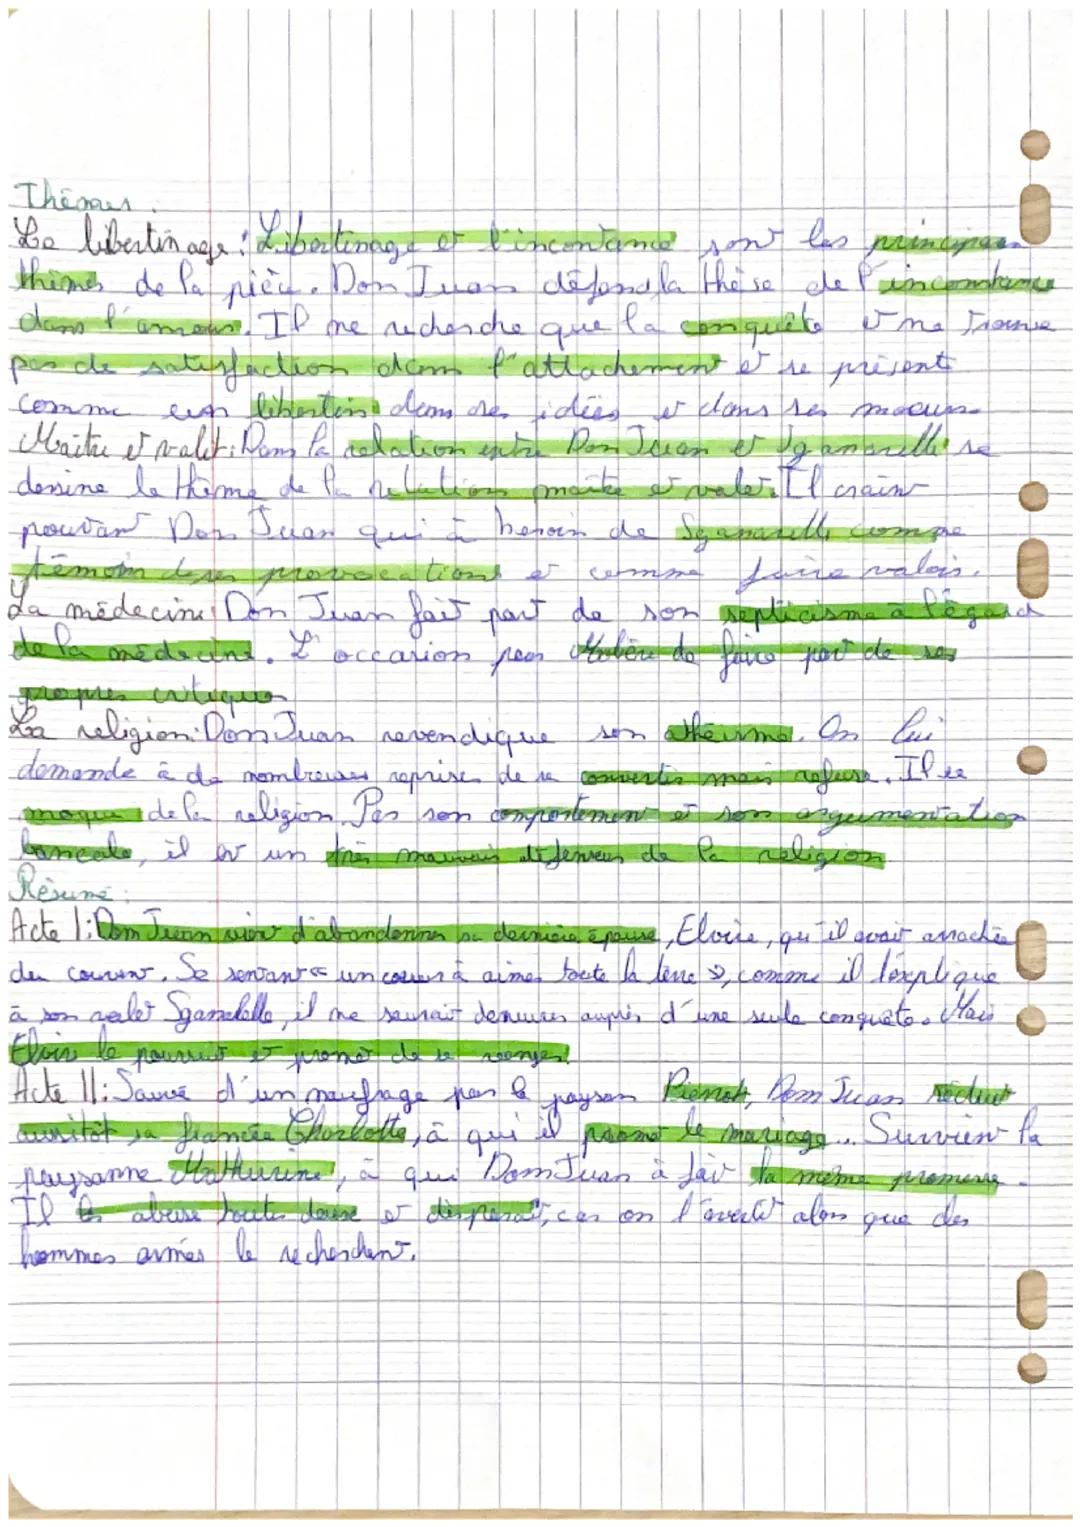 Thèmes :
Le libertinage : Libertinage et l'inconstance sont les principaux
thèmes de la pièce. Don Juan défend la thèse de l'inconstance
dans l'amour. Il ne recherche que la conquête et ne trouve
pas de satisfaction dans l'attachement et se présent
comme un libertin dans ses idées et dans ses mœurs
Maître et valet : Dans la relation entre Don Juan et Sganarelle se
dessine le thème de la relation maître et valet. Il craint
pourtant Don Juan qui à besoin de Sganarelle comme
témoin de ses provocations et comme faire valoir.
La médecine : Don Juan fait part de son septicisme à l'égard
de la médecine. L'occasion pour Molière de faire part de ses
propres critiques
La religion : Don Juan revendique son athéisme. On lui
demande à de nombreuses reprises de se convertir mais refuse. Il se
moque de la religion. Par son comportement et son argumentation
bancale, il est un très mauvais défenseur de la religion
Résumé :
Acte I : Dom Juan vient d'abandonner sa dernière épouse, Elvire, qu'il avait arrachée
du couvent. Se sentant « un coeur à aimer toute la terre », comme il l'explique
à son valet Sganalelle, il ne saurait demeurer auprès d'une seule conquête. Mais
Elvire le poursuit et promet de se venger.
Acte II : Sauvé d'un naufrage par le paysan Pierrot, Dom Juan séduit
aussitôt sa fiancée Charlotte, à qui il promet le mariage... Survient la
paysanne Mathurine, à qui Dom Juan à fait la même promesse.
Il les abuse toutes deux et disparait, car on l'avertit alors que des
hommes armés le recherchent.